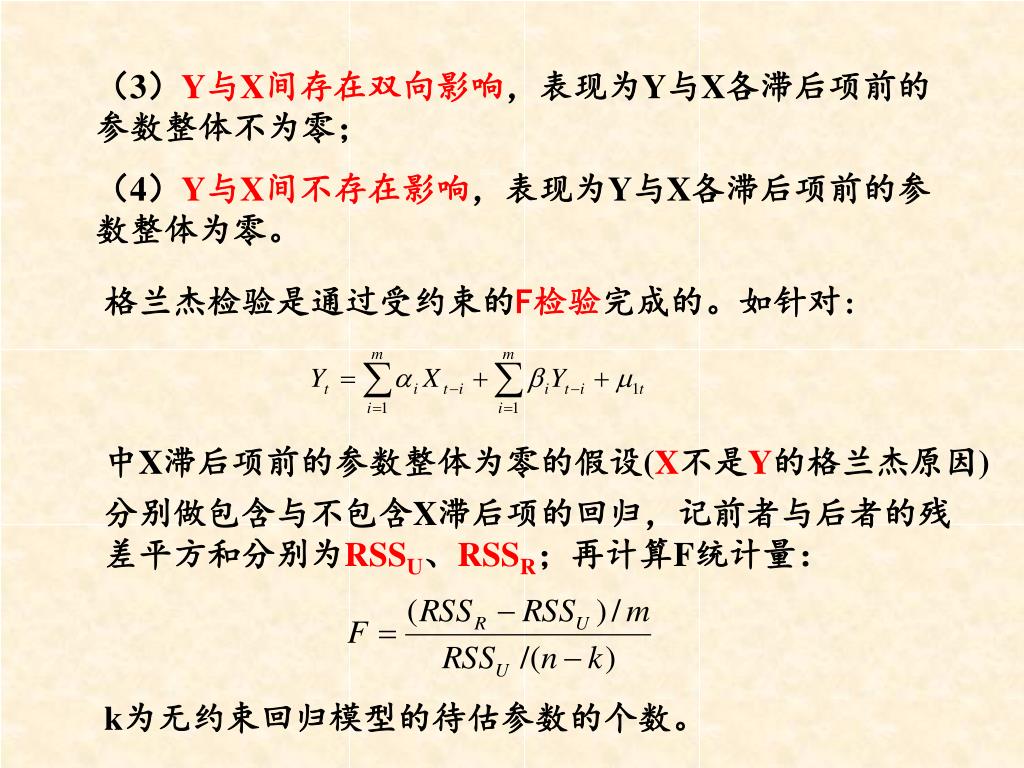 （3）Y与X间存在双向影响，表现为Y与X各滞后项前的
参数整体不为零；
（4）Y与X间不存在影响，表现为Y与X各滞后项前的参
数整体为零。
格兰杰检验是通过受约束的F检验完成的。如针对：
Y_t = \sum_{i=1}^{m} \alpha_i X_{t-i} + \sum_{i=1}^{m} \beta_i Y_{t-i} + \mu_{1t}
中X滞后项前的参数整体为零的假设(X不是Y的格兰杰原因)
分别做包含与不包含X滞后项的回归，记前者与后者的残
差平方和分别为RSS_U、RSS_R；再计算F统计量：
F = \frac{(RSS_R - RSS_U)/m}{RSS_U/(n-k)}
k为无约束回归模型的待估参数的个数。